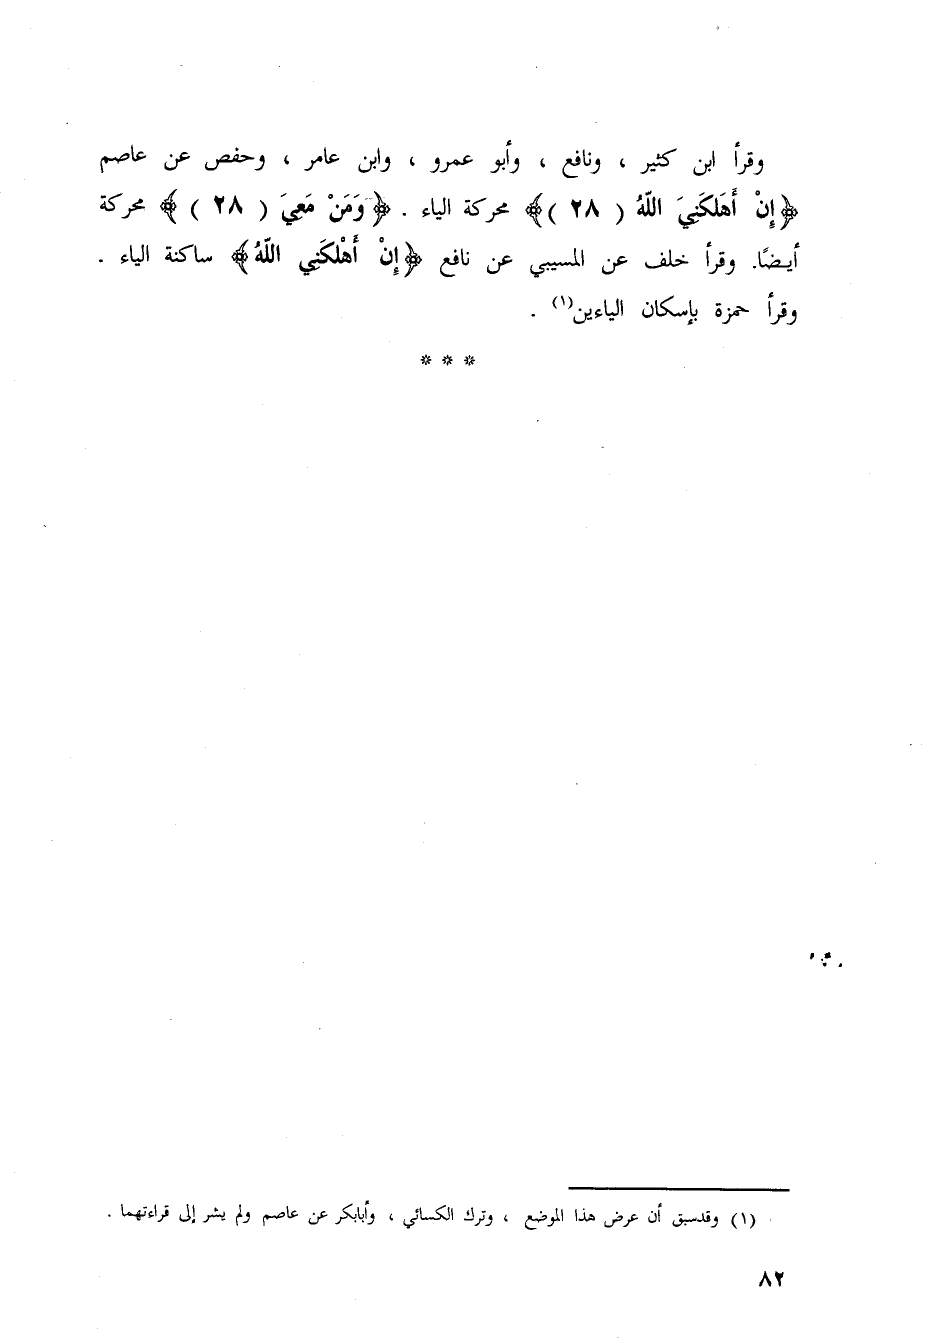 وقرأ ابن كثير ، ونافع ، وأبو عمرو ، وابن عامر ، وحفص عن عاصم
﴿إِنْ أَهَلكَنِيَ اللّهُ ( ٢٨ )﴾ محركة الياء . ﴿وَمَنْ مَعِيَ ( ٢٨ )﴾ محركة
أيضًا. وقرأ خلف عن المسيبي عن نافع ﴿إِنْ أَهْلكَنِي اللّهُ﴾ ساكنة الياء .
وقرأ حمزة بإسكان الياءين(١) .
* * *
(١) وقدسبق أن عرض هذا الموضع ، وترك الكسائي ، وأبابكر عن عاصم ولم يشر إلى قراءتهما .
٨٢